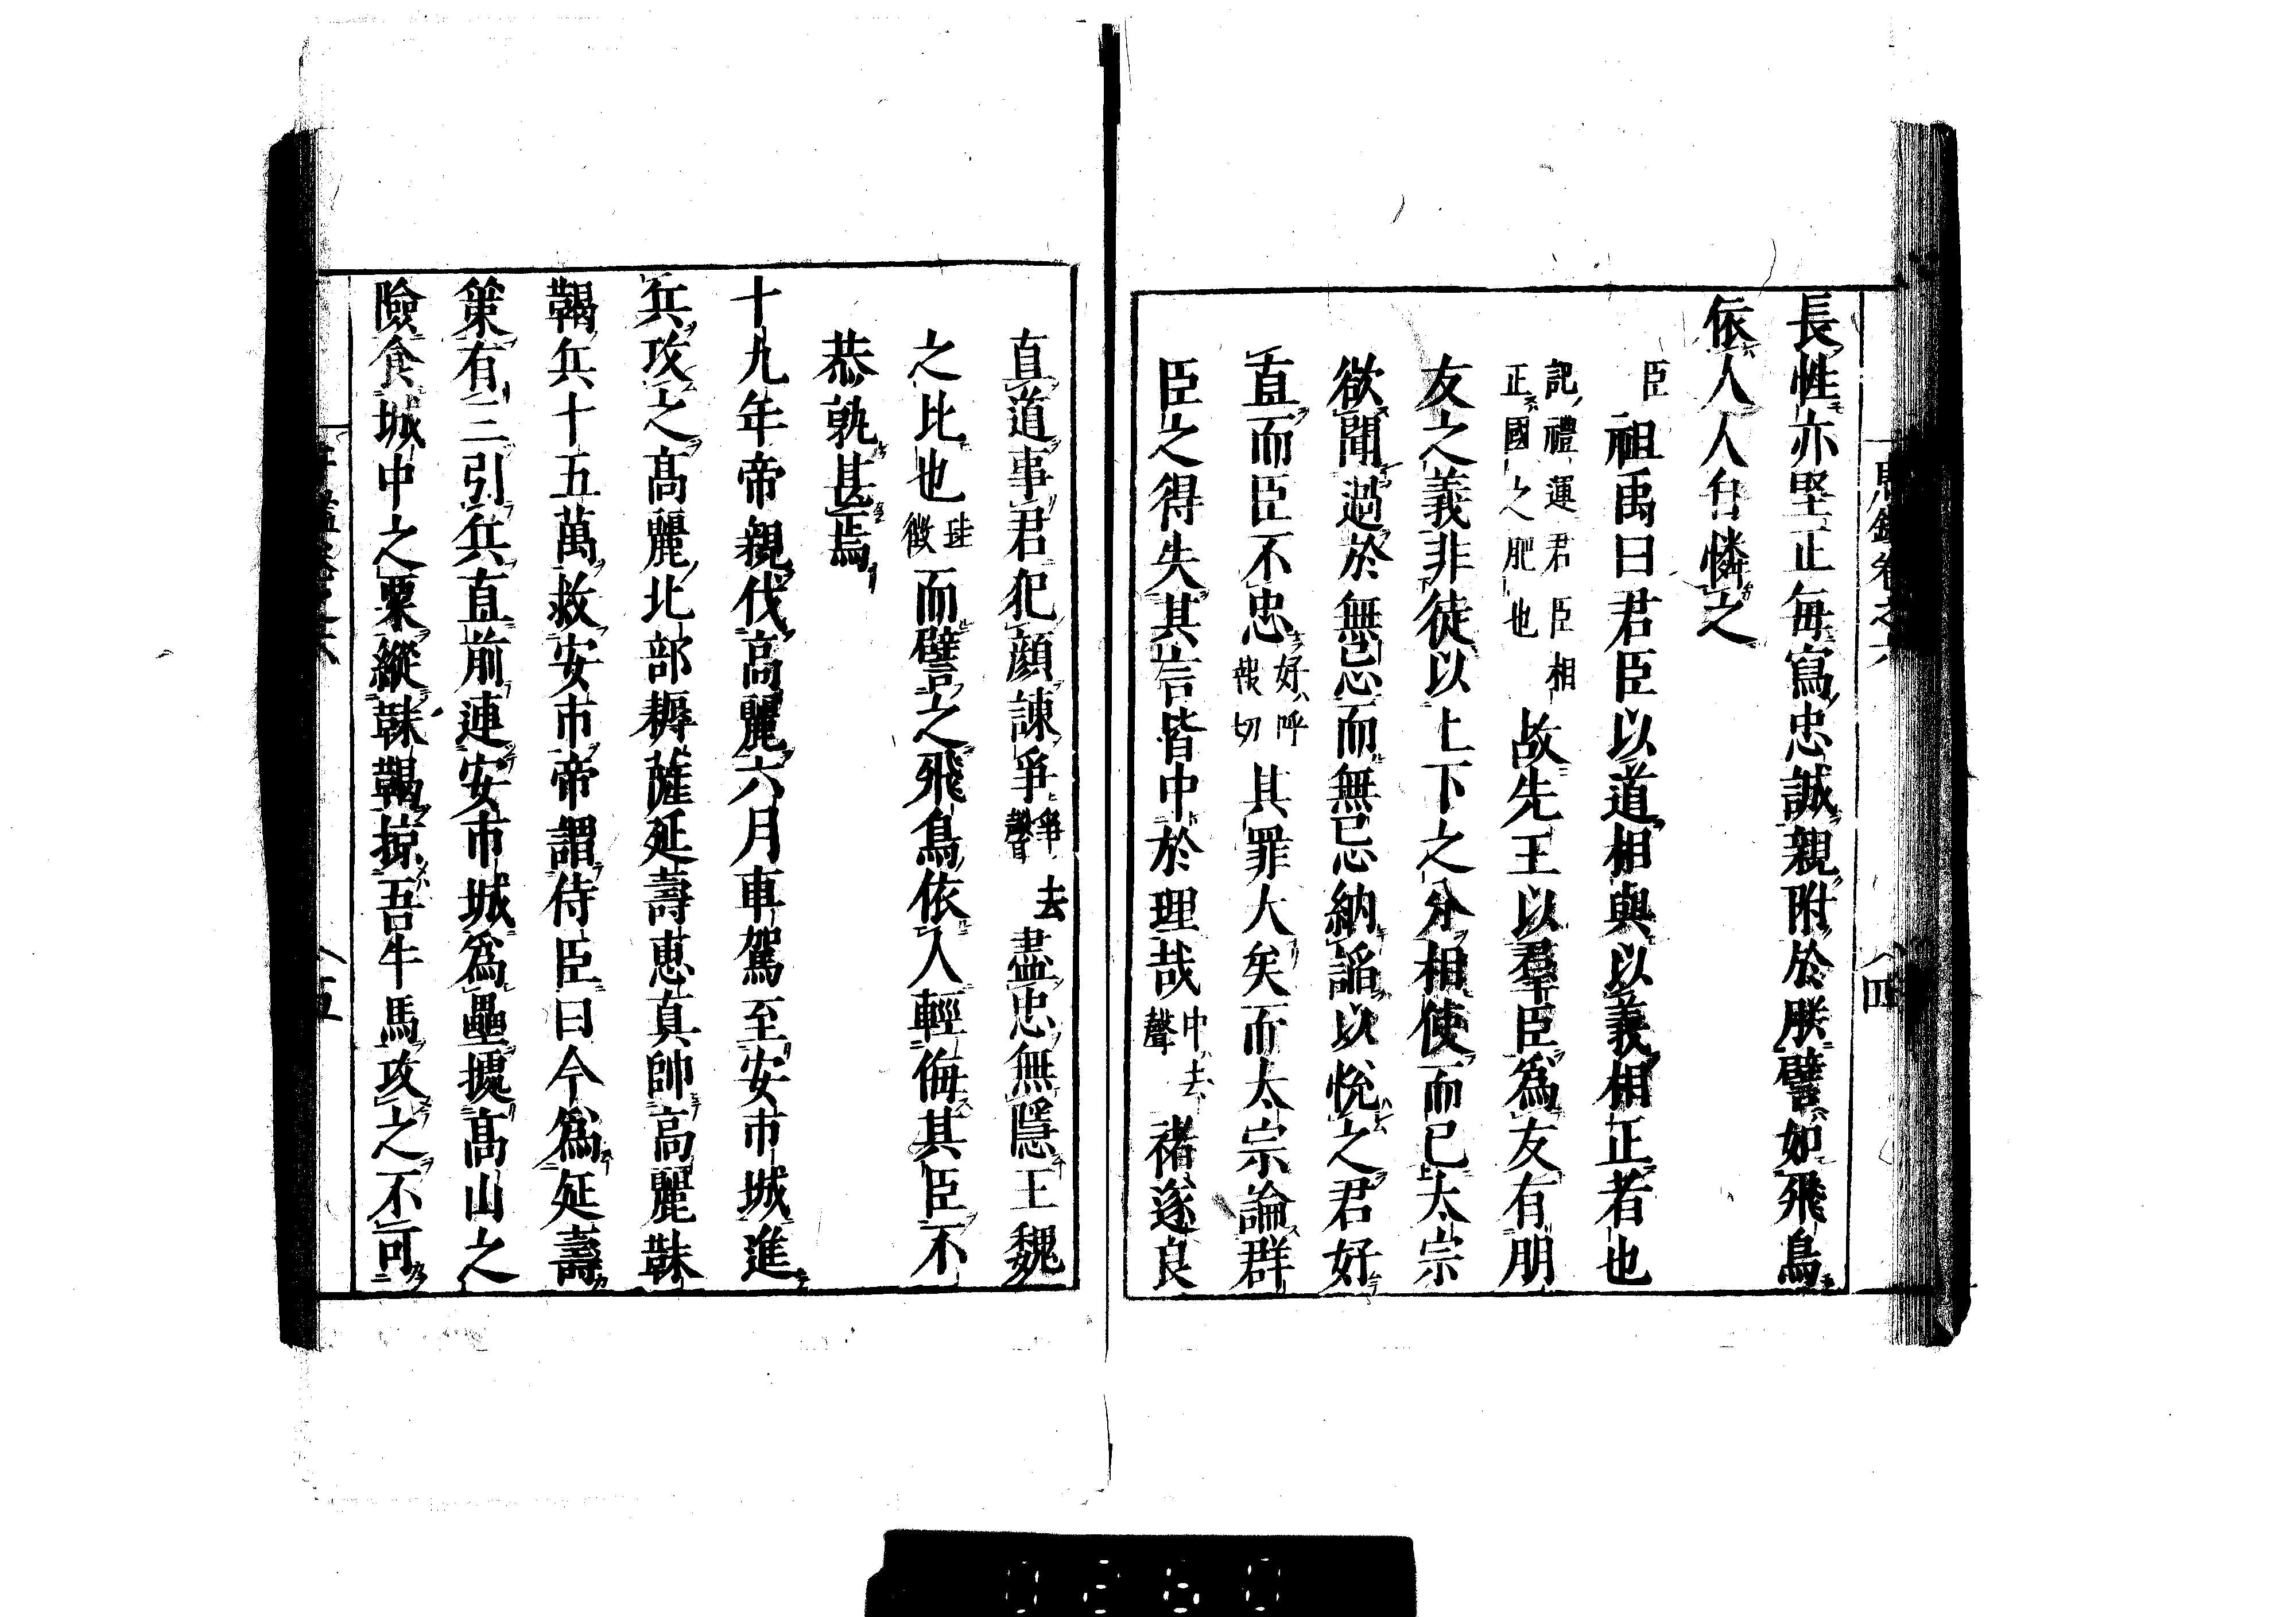 長性亦堅正每寫忠誠親附於朕譬如飛鳥
依人人自憐之
臣祖禹曰君臣以道相與以義相正者也
記禮運君臣相
正國之肥也
故先王以羣臣爲友有朋
友之義非徒以上下之分相使而已太宗
欲聞過於無忌而無忌納諂以悅之君好
直而臣不忠
好呼
報切
其罪大矣而太宗論群
臣之得失其言皆中於理哉
中去
聲
褚遂良
直道事君犯顏諫爭
爭去
聲
盡忠無隱王魏
之比也
珪
徵
而譬之飛鳥依人輕侮其臣不
恭孰甚焉
十九年帝親伐高麗六月車駕至安市城進
兵攻之高麗北部耨薩延壽惠真帥高麗靺
鞨兵十五萬救安市帝謂侍臣曰今爲延壽
策有三引兵直前連安市城爲壘據高山之
險食城中之粟縱靺鞨掠吾牛馬攻之不可